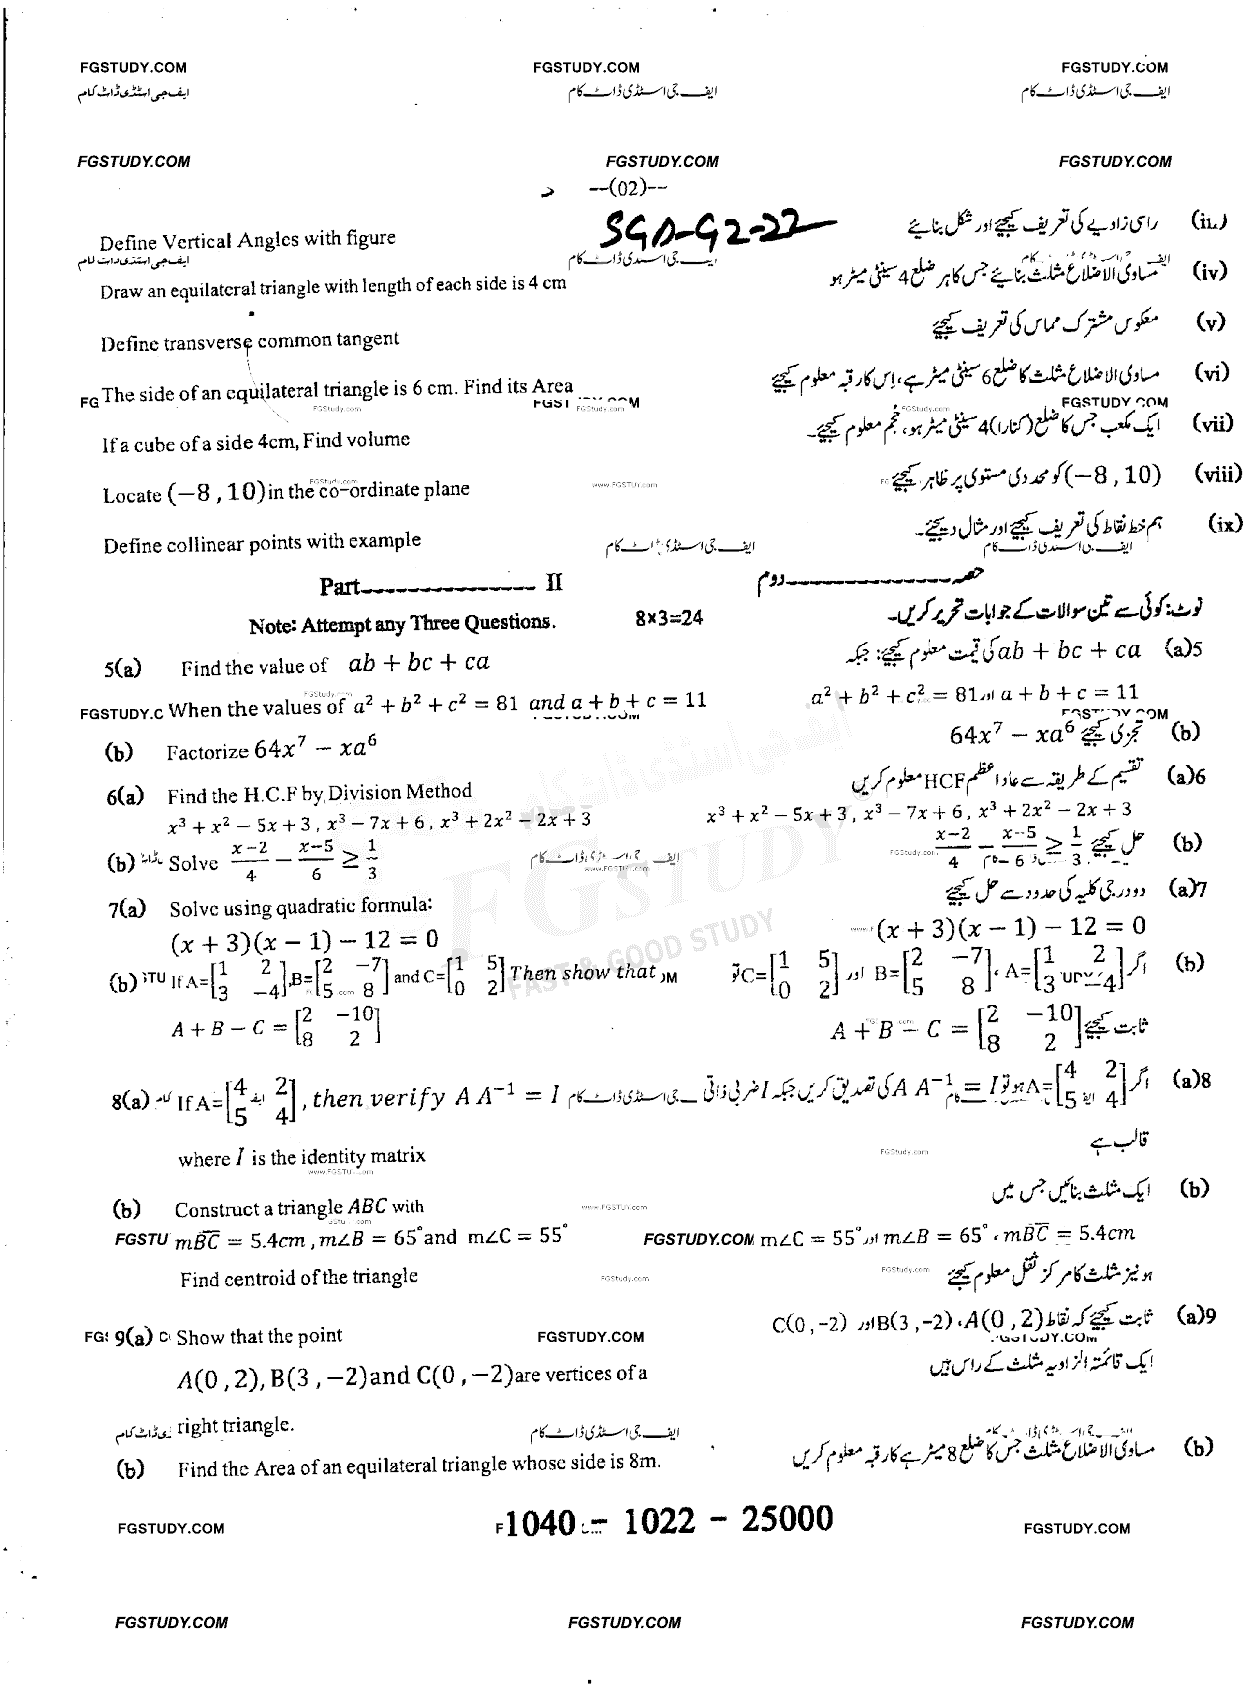 FGSTUDY.COM FGSTUDY.COM FGSTUDY.COM
ایف جی اسٹڈی ڈاٹ کام ایف جی اسٹڈی ڈاٹ کام ایف جی اسٹڈی ڈاٹ کام
FGSTUDY.COM FGSTUDY.COM FGSTUDY.COM
--(02)--
SGD-G2-22
Define Vertical Angles with figure راسی زاویے کی تعریف کیجئے اور شکل بنائیے
Draw an equilateral triangle with length of each side is 4 cm مساوی الاضلاع مثلث بنائیے جس کا ہر ضلع 4 سینٹی میٹر ہو (iv)
Define transverse common tangent معکوس مشترک مماس کی تعریف کیجئے (v)
The side of an equilateral triangle is 6 cm. Find its Area مساوی الاضلاع مثلث کا ضلع 6 سینٹی میٹر ہے، اس کا رقبہ معلوم کیجئے (vi)
If a cube of a side 4cm, Find volume ایک مکعب جس کا ضلع (کنارا) 4 سینٹی میٹر ہو، حجم معلوم کیجئے۔ (vii)
Locate (−8 , 10) in the co-ordinate plane (−8 , 10) کو محددی مستوی پر ظاہر کیجئے (viii)
Define collinear points with example ہم خط نقاط کی تعریف کیجئے اور مثال دیجئے۔ (ix)
Part---------------- II حصہ----------------دوم
Note: Attempt any Three Questions. 8×3=24 نوٹ: کوئی سے تین سوالات کے جوابات تحریر کریں۔
5(a) Find the value of ab + bc + ca ab + bc + ca کی قیمت معلوم کیجئے: جبکہ (a)5
When the values of a² + b² + c² = 81 and a + b + c = 11 a² + b² + c² = 81 اور a + b + c = 11
(b) Factorize 64x⁷ − xa⁶ 64x⁷ − xa⁶ تجزی کیجئے (b)
6(a) Find the H.C.F by Division Method تقسیم کے طریقہ سے عاد اعظم HCF معلوم کریں (a)6
x³ + x² − 5x + 3 , x³ − 7x + 6 , x³ + 2x² − 2x + 3 x³ + x² − 5x + 3 , x³ − 7x + 6 , x³ + 2x² − 2x + 3
(b) Solve (x−2)/4 − (x−5)/6 ≥ 1/3 (x−2)/4 − (x−5)/6 ≥ 1/3 حل کیجئے (b)
7(a) Solve using quadratic formula: دو درجی کلیہ کی مدد سے حل کیجئے (a)7
(x + 3)(x − 1) − 12 = 0 (x + 3)(x − 1) − 12 = 0
(b) If A=[1 2; 3 −4], B=[2 −7; 5 8] and C=[1 5; 0 2] Then show that اگر A=[1 2; 3 −4], B=[2 −7; 5 8] اور C=[1 5; 0 2] تو (b)
A + B − C = [2 −10; 8 2] A + B − C = [2 −10; 8 2] ثابت کیجئے
8(a) If A=[4 2; 5 4], then verify A A⁻¹ = I اگر A=[4 2; 5 4] ہو تو A A⁻¹ = I کی تصدیق کریں جبکہ I ضربی ذاتی (a)8
where I is the identity matrix قالب ہے
(b) Construct a triangle ABC with ایک مثلث بنائیں جس میں (b)
mBC = 5.4cm , m∠B = 65° and m∠C = 55° FGSTUDY.COM m∠C = 55° اور m∠B = 65° ، mBC = 5.4cm
Find centroid of the triangle ہو نیز مثلث کا مرکز ثقل معلوم کیجئے
9(a) Show that the point FGSTUDY.COM ثابت کیجئے کہ نقاط A(0 , 2)، B(3 , −2) اور C(0 , −2) (a)9
A(0 , 2), B(3 , −2) and C(0 , −2) are vertices of a ایک قائمتہ الزاویہ مثلث کے راس ہیں
right triangle. ایف جی اسٹڈی ڈاٹ کام
(b) Find the Area of an equilateral triangle whose side is 8m. مساوی الاضلاع مثلث جس کا ضلع 8 میٹر ہے کا رقبہ معلوم کریں (b)
FGSTUDY.COM 1040 - 1022 - 25000 FGSTUDY.COM
FGSTUDY.COM FGSTUDY.COM FGSTUDY.COM